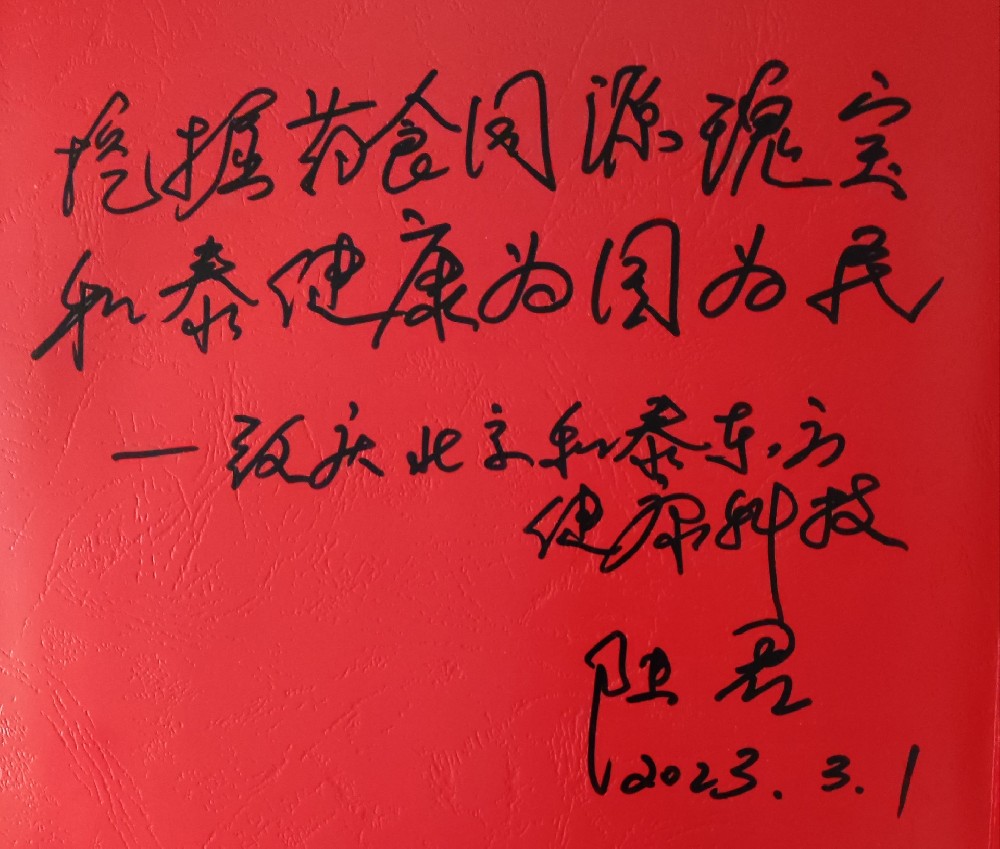 挖掘药食同源瑰宝
和泰健康为国为民
—致庆北京和泰东方
健康科技
君
2023.3.1